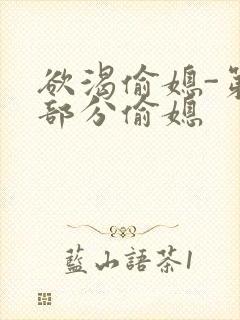 欲渴偷媳-第
部分偷媳
藍山語茶1